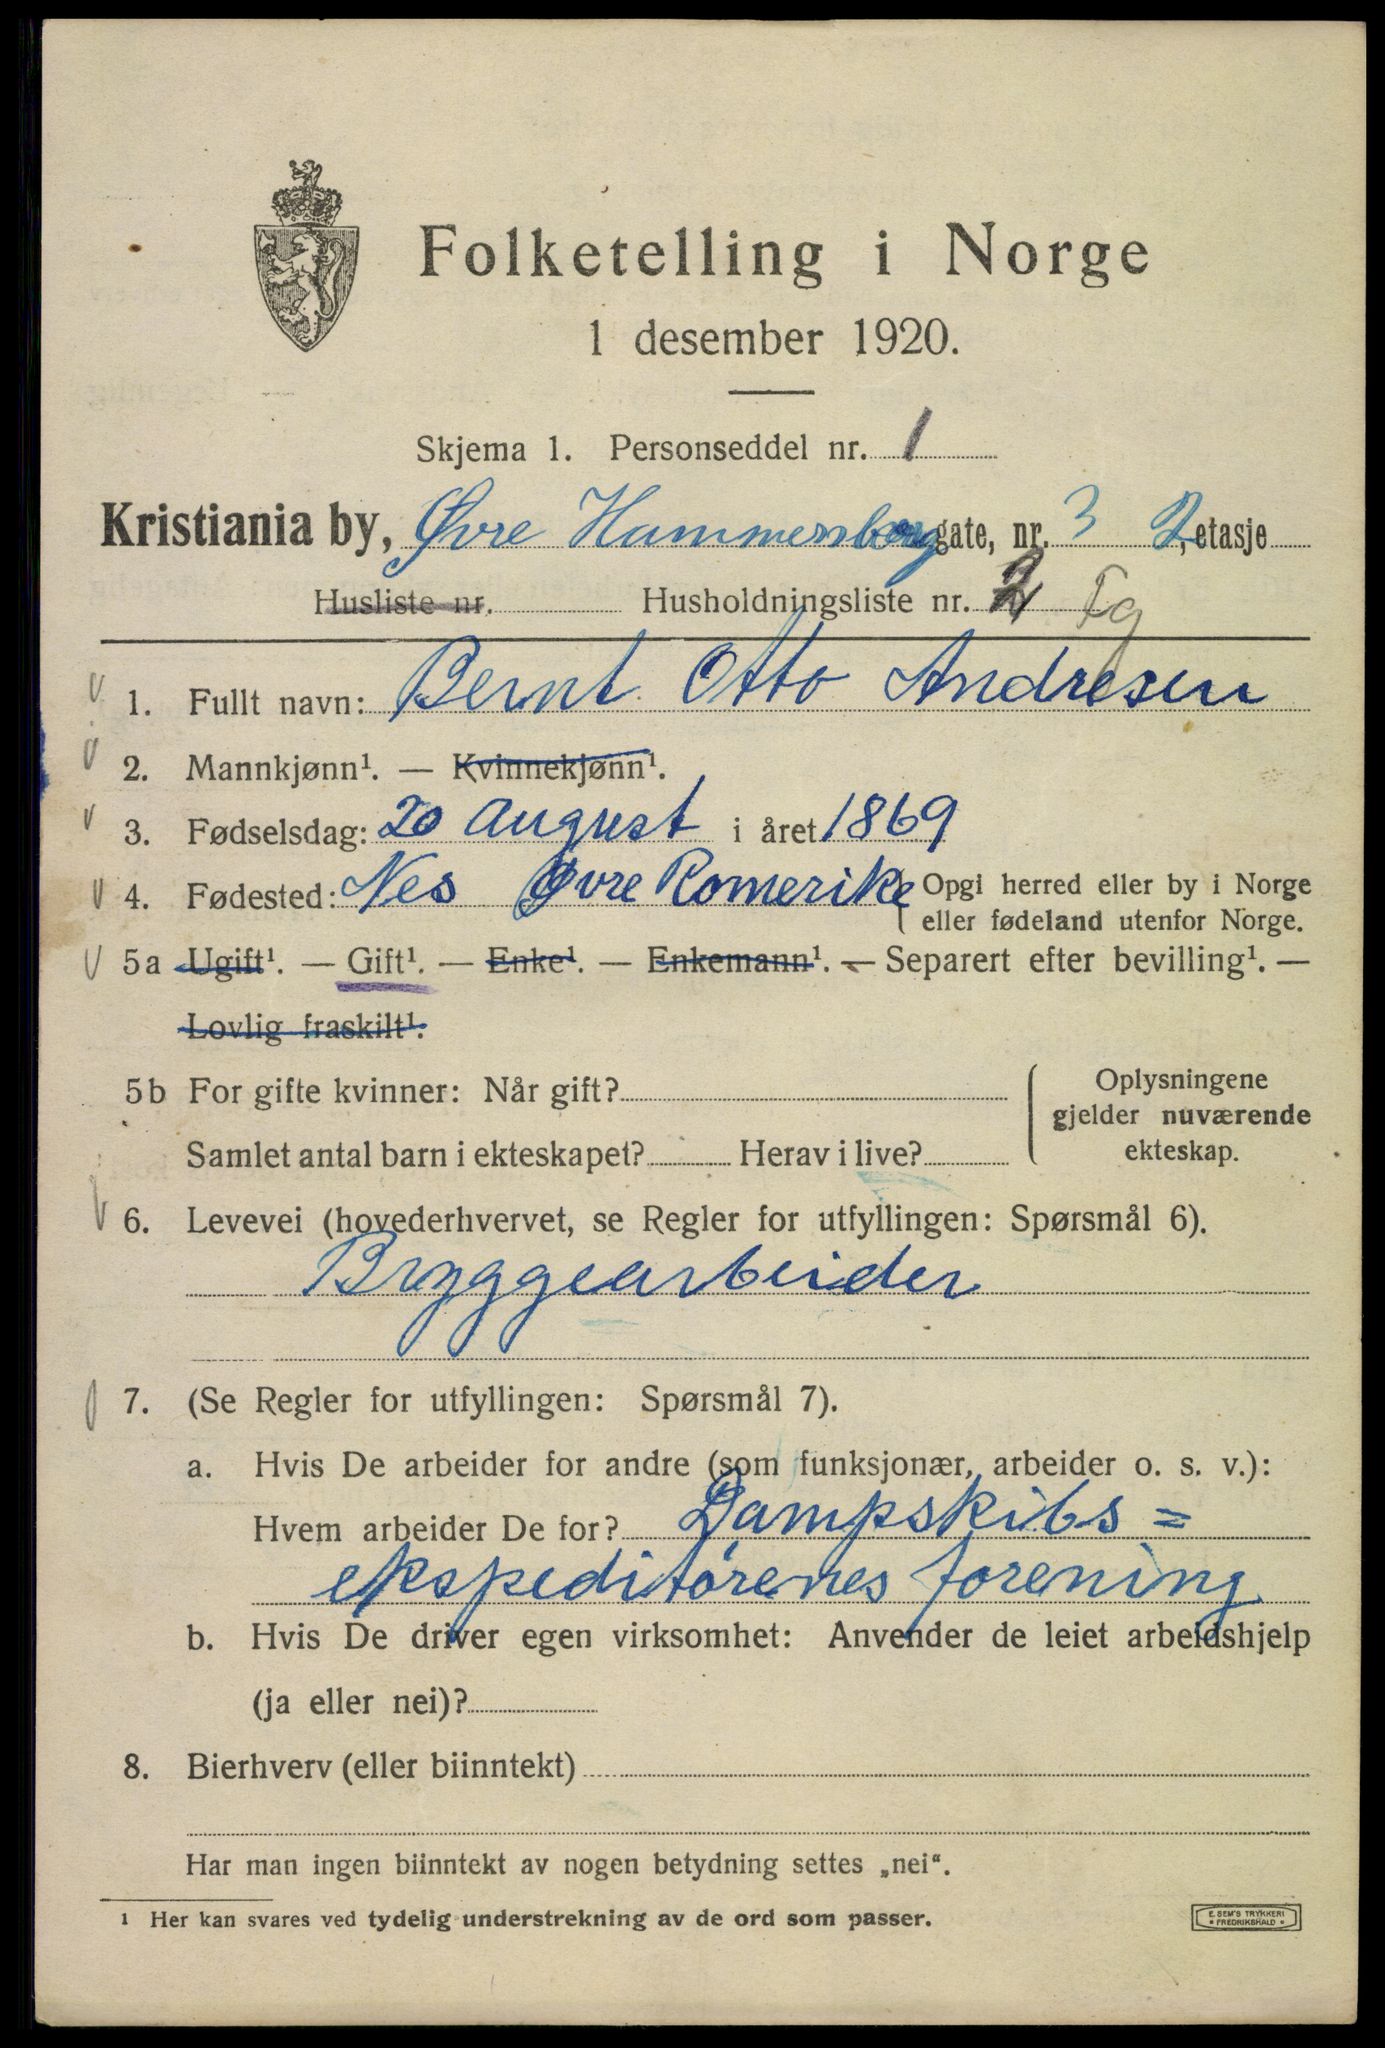 Folketelling i Norge
1 desember 1920.
Skjema 1. Personseddel nr. 1
Kristiania by, Øvre Hammersborg gate, nr. 3 2, etasje
Husliste nr. Husholdningsliste nr. 2 Fg
1. Fullt navn: Bernt Otto Andresen
2. Mannkjønn¹. — Kvinnekjønn¹.
3. Fødselsdag: 20 August i året 1869
4. Fødested: Nes Øvre Romerike Opgi herred eller by i Norge
eller fødeland utenfor Norge.
5a Ugift¹. — Gift¹. — Enke¹. — Enkemann¹. — Separert efter bevilling¹. —
Lovlig fraskilt¹.
5b For gifte kvinner: Når gift?
Samlet antal barn i ekteskapet? Herav i live?
Oplysningene
gjelder nuværende
ekteskap.
6. Levevei (hovederhvervet, se Regler for utfyllingen: Spørsmål 6).
Bryggearbeider
7. (Se Regler for utfyllingen: Spørsmål 7).
a. Hvis De arbeider for andre (som funksjonær, arbeider o. s. v.):
Hvem arbeider De for? Dampskibs=
ekspeditørenes forening
b. Hvis De driver egen virksomhet: Anvender de leiet arbeidshjelp
(ja eller nei)?
8. Bierhverv (eller biinntekt)
Har man ingen biinntekt av nogen betydning settes „nei“.
¹ Her kan svares ved tydelig understrekning av de ord som passer.
E. SEM'S TRYKKERI
FREDRIKSHALD